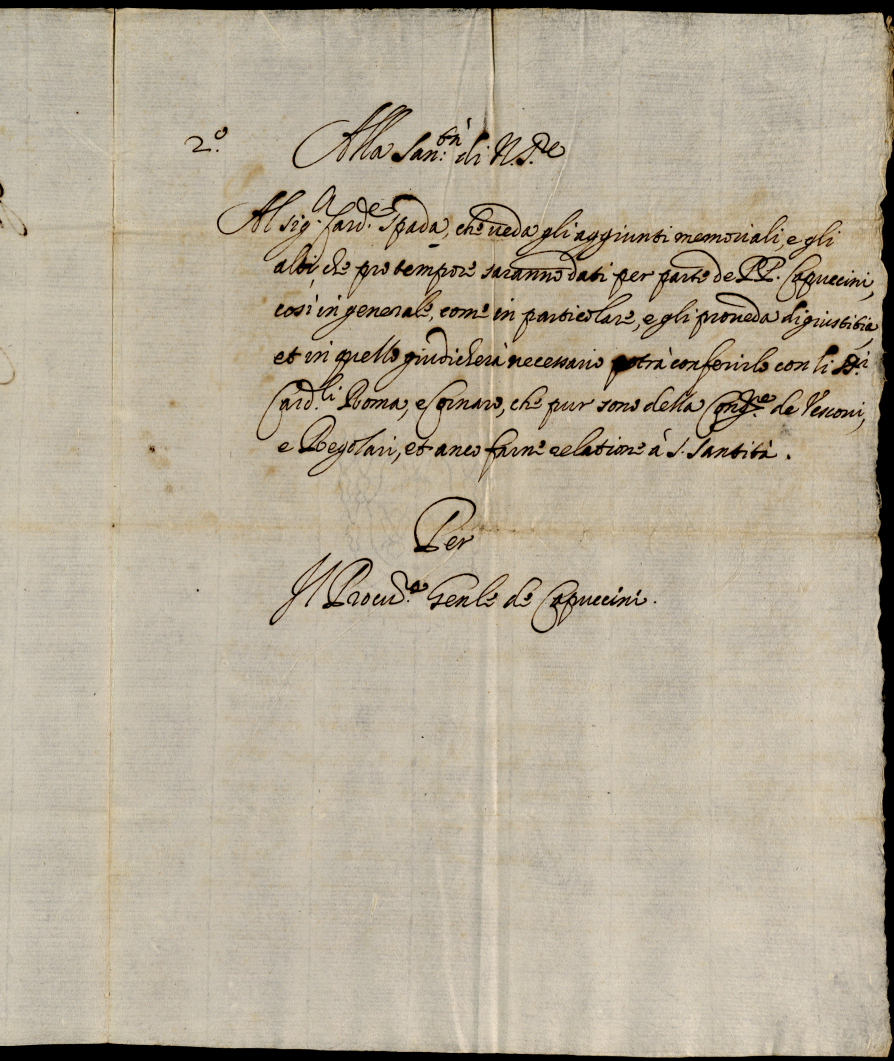 2.º
Alla San:tà di N. S.re
Al sig.r Card.e Spada, che veda gli aggiunti memoriali, e gli
altri, che pro tempore saranno dati per parte de PP. Capuccini,
così in generale, come in particolare, e gli proueda di giustitia,
et in quello giudicherà necessario potrà conferirlo con li SS.ri
Card.li Roma, e Cornaro, che pur sono della Cong.ne de Vescoui,
e Regolari, et anco farne relatione à S. Santità.
Per
Il Procu.re Genle de Capuccini.